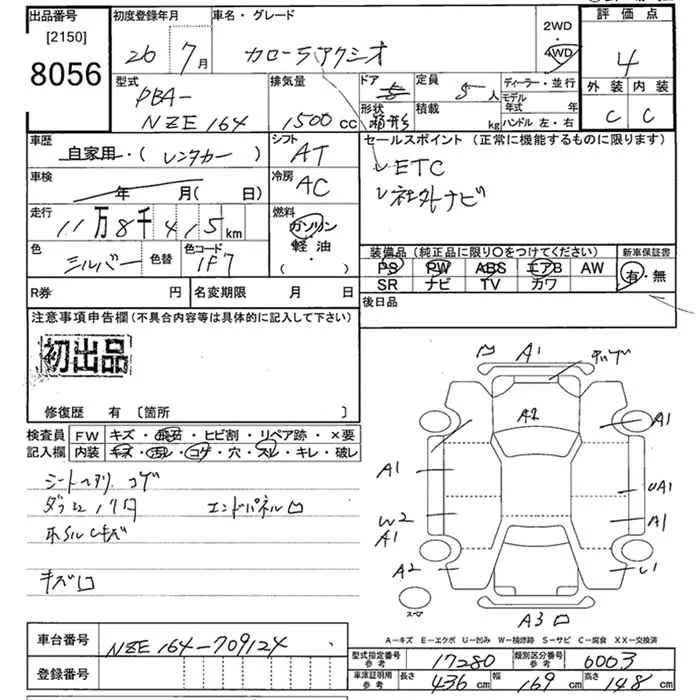 出品番号 初度登録年月 車名・グレード 2WD 評価点
[2150] 26 7月 カローラアクシオ 4WD 4
8056
型式 排気量 ドア 定員 ディーラー・並行 外装 内装
DBA- 5 5人 モデル年式 年 C C
NZE164 1500CC 形状 箱形 積載 kg ハンドル 左・右
車歴 シフト セールスポイント (正常に機能するものに限ります)
自家用・(レンタカー) AT レETC
車検 冷房 レ社外ナビ
年 月(日) AC
走行 燃料
11万8千415km ガソリン
色 色替 色コード 軽油
シルバー 1F7 (・)
装備品 (純正品に限り〇をつけてください) 新車保証書
PS PW ABS エアB AW 有・無
SR ナビ TV カワ
R券 円 名変期限 月 日 後日品
注意事項申告欄(不具合内容等は具体的に記入して下さい)
初出品
修復歴 有 [箇所 ]
検査員 FW キズ・飛石・ヒビ割・リペア跡・×要
記入欄 内装 キズ・汚レ・コゲ・穴・スレ・キレ・破レ
シートヘタリ コゲ
エンドパネル
キズ
A1
A2 A1
A1 UA1
W2 A1
A1
A2 U1
スペア
A3
A-キズ E-エクボ U-凹み W-補修跡 S-サビ C-腐食 XX-交換済
車台番号 NZE164-709124
登録番号
型式指定番号 参考 17280 類別区分番号 参考 6003
車庫証明用 参考 長さ 436cm 幅 169cm 高さ 148cm